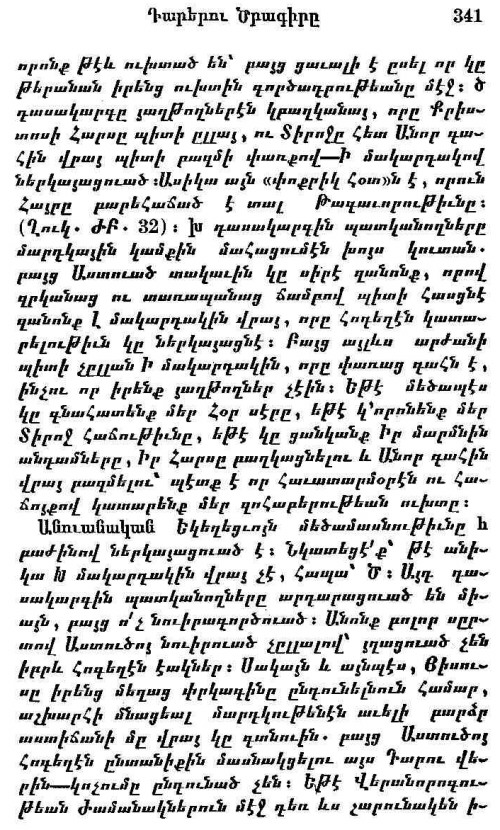 Դարերու Ծրագիրը 341
որոնք թէև ուխտած են՝ բայց ցաւալի է ըսել որ կը
թերանան իրենց ուխտին գործադրութեանը մէջ։ ծ
դասակարգը յաղթողներէն կբաղկանայ, որը Քրիս-
տոսի Հարսը պիտի ըլլայ, ու Տիրոջը հետ Անոր գա-
հին վրայ պիտի բազմի փառքով—Ի մակարդակով
ներկայացուած։Ասիկա այն «փոքրիկ հօտ»ն է, որուն
Հայրը բարեհաճած է տալ Թագաւորութիւնը։
(Ղուկ. ԺԲ. 32)։ խ դասակարգին պատկանողները
մարդկային կամքին մահացումէն խոյս կուտան.
բայց Աստուած տակաւին կը սիրէ զանոնք, որով
զրկանաց ու տառապանաց ճամբով պիտի հասցնէ
զանոնք Լ մակարդակին վրայ, որը հոգեղէն կատա-
րելութիւն կը ներկայացնէ։ Բայց այլևս արժանի
պիտի չըլլան Ի մակարդակին, որը փառաց գահն է,
ինչու որ իրենք յաղթողներ չէին։ Եթէ մեծապէս
կը գնահատենք մեր Հօր սէրը, եթէ կ՚որոնենք մեր
Տիրոջ հաճութիւնը, եթէ կը ցանկանք Իր մարմնին
անդամները, Իր Հարսը բաղկացնելու և Անոր գահին
վրայ բազմելու՝ պէտք է որ հաւատարմօրէն ու հա-
ճոյքով կատարենք մեր զոհաբերութեան ուխտը։
Անուանական Եկեղեցւոյն մեծամասնութիւնը հ
բաժինով ներկայացուած է։ Նկատեցէ՛ք՝ թէ անի-
կա Խ մակարդակին վրայ չէ, հապա՝ Ծ։ Այդ դա-
սակարգին պատկանողները արդարացուած են մի-
այն, բայց ո՛չ նուիրագործուած։ Անոնք բոլոր սըր-
տով Աստուծոյ նուիրուած չըլլալով՝ յղացուած չեն
իբրև հոգեղէն էակներ։ Սակայն և այնպէս, Յիսու-
սը իրենց մեղաց փրկագինը ընդունելնուն համար,
աշխարհի մնացեալ մարդկութենէն աւելի բարձր
աստիճանի մը վրայ կը գտնուին. բայց Աստուծոյ
հոգեղէն ընտանիքին մասնակցելու այս Դարու վե-
րին—կոչումը ընդունած չեն։ Եթէ Վերանորոգու-
թեան Ժամանակներուն մէջ դեռ ևս շարունակեն ի-